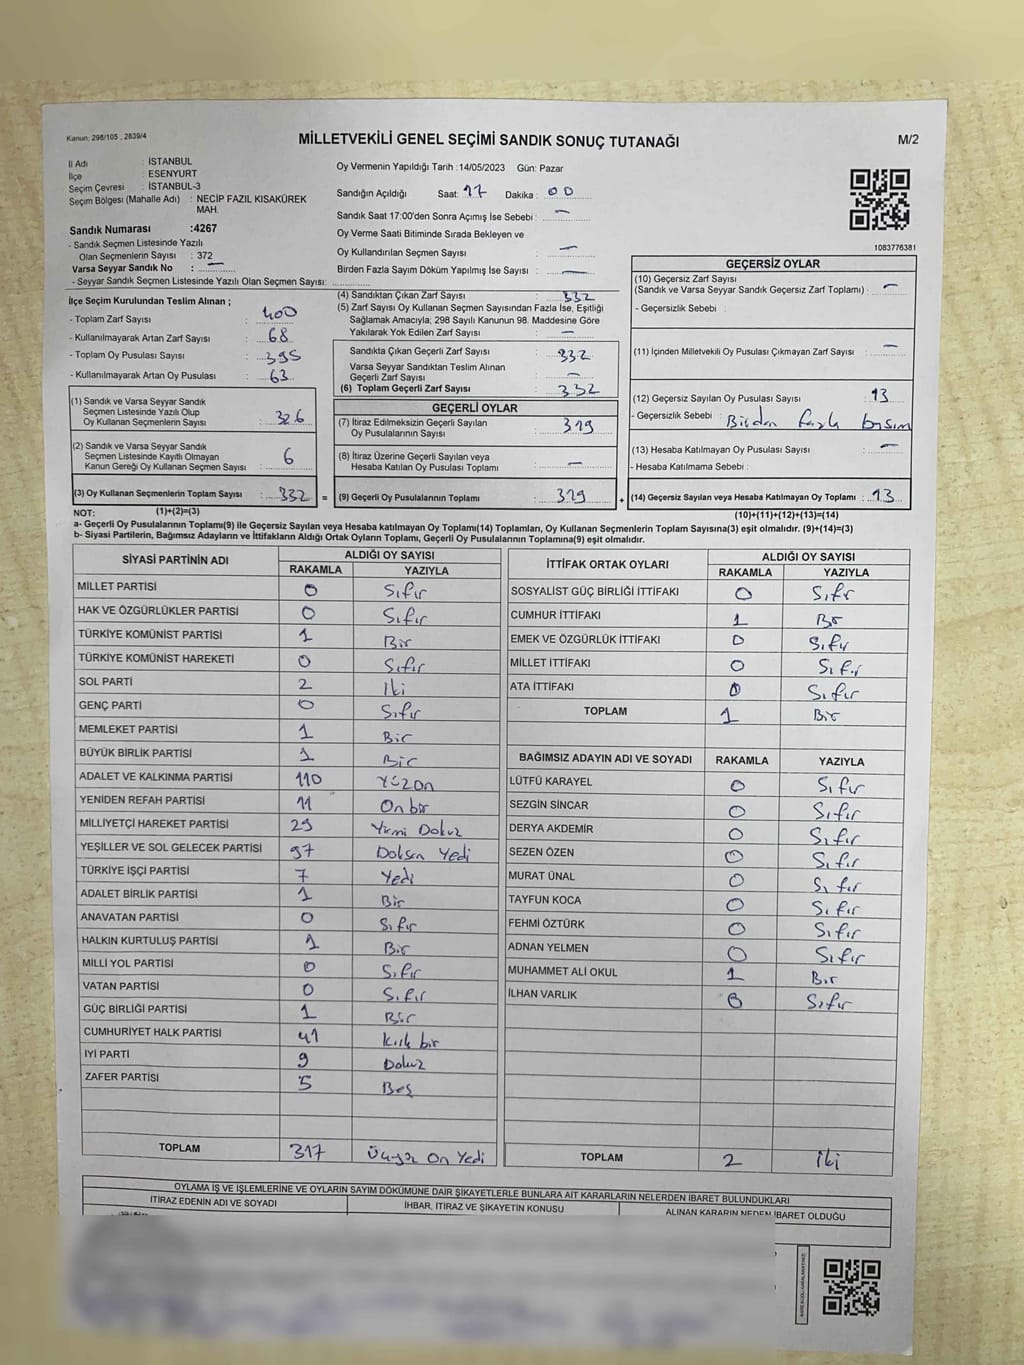 Kanun: 298/105 , 2839/4
MİLLETVEKİLİ GENEL SEÇİMİ SANDIK SONUÇ TUTANAĞI
M/2
İl Adı : İSTANBUL
İlçe : ESENYURT
Seçim Çevresi : İSTANBUL-3
Seçim Bölgesi (Mahalle Adı) : NECİP FAZIL KISAKÜREK
MAH.
Sandık Numarası :4267
- Sandık Seçmen Listesinde Yazılı
Olan Seçmenlerin Sayısı : 372
Varsa Seyyar Sandık No : —
- Seyyar Sandık Seçmen Listesinde Yazılı Olan Seçmen Sayısı:
Oy Vermenin Yapıldığı Tarih :14/05/2023 Gün: Pazar
Sandığın Açıldığı Saat: 17 Dakika : 00
Sandık Saat 17:00'den Sonra Açımış İse Sebebi : —
Oy Verme Saati Bitiminde Sırada Bekleyen ve
Oy Kullandırılan Seçmen Sayısı : —
Birden Fazla Sayım Döküm Yapılmış İse Sayısı : —
1083776381
İlçe Seçim Kurulundan Teslim Alınan ;
- Toplam Zarf Sayısı : 400
- Kullanılmayarak Artan Zarf Sayısı : 68
- Toplam Oy Pusulası Sayısı : 395
- Kullanılmayarak Artan Oy Pusulası : 63
(1) Sandık ve Varsa Seyyar Sandık
Seçmen Listesinde Yazılı Olup
Oy Kullanan Seçmenlerin Sayısı : 326
(2) Sandık ve Varsa Seyyar Sandık
Seçmen Listesinde Kayıtlı Olmayan
Kanun Gereği Oy Kullanan Seçmen Sayısı : 6
(3) Oy Kullanan Seçmenlerin Toplam Sayısı : 332
(4) Sandıktan Çıkan Zarf Sayısı : 332
(5) Zarf Sayısı Oy Kullanan Seçmen Sayısından Fazla İse, Eşitliği
Sağlamak Amacıyla; 298 Sayılı Kanunun 98. Maddesine Göre
Yakılarak Yok Edilen Zarf Sayısı : —
Sandıkta Çıkan Geçerli Zarf Sayısı : 332
Varsa Seyyar Sandıktan Teslim Alınan
Geçerli Zarf Sayısı : —
(6) Toplam Geçerli Zarf Sayısı : 332
GEÇERLİ OYLAR
(7) İtiraz Edilmeksizin Geçerli Sayılan
Oy Pusulalarının Sayısı : 319
(8) İtiraz Üzerine Geçerli Sayılan veya
Hesaba Katılan Oy Pusulası Toplamı : —
= (9) Geçerli Oy Pusulalarının Toplamı : 319
GEÇERSİZ OYLAR
(10) Geçersiz Zarf Sayısı
(Sandık ve Varsa Seyyar Sandık Geçersiz Zarf Toplamı) : —
- Geçersizlik Sebebi :
(11) İçinden Milletvekili Oy Pusulası Çıkmayan Zarf Sayısı : —
(12) Geçersiz Sayılan Oy Pusulası Sayısı : 13
- Geçersizlik Sebebi : Birden fazla basım
(13) Hesaba Katılmayan Oy Pusulası Sayısı : —
- Hesaba Katılmama Sebebi :
+ (14) Geçersiz Sayılan veya Hesaba Katılmayan Oy Toplamı : 13
NOT: (1)+(2)=(3)
(10)+(11)+(12)+(13)=(14)
a- Geçerli Oy Pusulalarının Toplamı(9) ile Geçersiz Sayılan veya Hesaba katılmayan Oy Toplamı(14) Toplamları, Oy Kullanan Seçmenlerin Toplam Sayısına(3) eşit olmalıdır. (9)+(14)=(3)
b- Siyasi Partilerin, Bağımsız Adayların ve İttifakların Aldığı Ortak Oyların Toplamı, Geçerli Oy Pusulalarının Toplamına(9) eşit olmalıdır.
SİYASİ PARTİNİN ADI
ALDIĞI OY SAYISI
RAKAMLA YAZIYLA
MİLLET PARTİSİ 0 Sıfır
HAK VE ÖZGÜRLÜKLER PARTİSİ 0 Sıfır
TÜRKİYE KOMÜNİST PARTİSİ 1 Bir
TÜRKİYE KOMÜNİST HAREKETİ 0 Sıfır
SOL PARTİ 2 İki
GENÇ PARTİ 0 Sıfır
MEMLEKET PARTİSİ 1 Bir
BÜYÜK BİRLİK PARTİSİ 1 Bir
ADALET VE KALKINMA PARTİSİ 110 Yüzon
YENİDEN REFAH PARTİSİ 11 On bir
MİLLİYETÇİ HAREKET PARTİSİ 29 Yirmi Dokuz
YEŞİLLER VE SOL GELECEK PARTİSİ 97 Doksan Yedi
TÜRKİYE İŞÇİ PARTİSİ 7 Yedi
ADALET BİRLİK PARTİSİ 1 Bir
ANAVATAN PARTİSİ 0 Sıfır
HALKIN KURTULUŞ PARTİSİ 1 Bir
MİLLİ YOL PARTİSİ 0 Sıfır
VATAN PARTİSİ 0 Sıfır
GÜÇ BİRLİĞİ PARTİSİ 1 Bir
CUMHURİYET HALK PARTİSİ 41 Kırk bir
İYİ PARTİ 9 Dokuz
ZAFER PARTİSİ 5 Beş
TOPLAM 317 Üçyüz On Yedi
İTTİFAK ORTAK OYLARI
ALDIĞI OY SAYISI
RAKAMLA YAZIYLA
SOSYALİST GÜÇ BİRLİĞİ İTTİFAKI 0 Sıfır
CUMHUR İTTİFAKI 1 Bir
EMEK VE ÖZGÜRLÜK İTTİFAKI 0 Sıfır
MİLLET İTTİFAKI 0 Sıfır
ATA İTTİFAKI 0 Sıfır
TOPLAM 1 Bir
BAĞIMSIZ ADAYIN ADI VE SOYADI RAKAMLA YAZIYLA
LÜTFÜ KARAYEL 0 Sıfır
SEZGİN SİNCAR 0 Sıfır
DERYA AKDEMİR 0 Sıfır
SEZEN ÖZEN 0 Sıfır
MURAT ÜNAL 0 Sıfır
TAYFUN KOCA 0 Sıfır
FEHMİ ÖZTÜRK 0 Sıfır
ADNAN YELMEN 0 Sıfır
MUHAMMET ALİ OKUL 1 Bir
İLHAN VARLIK 0 Sıfır
TOPLAM 2 İki
OYLAMA İŞ VE İŞLEMLERİNE VE OYLARIN SAYIM DÖKÜMÜNE DAİR ŞİKAYETLERLE BUNLARA AİT KARARLARIN NELERDEN İBARET BULUNDUKLARI
İTİRAZ EDENİN ADI VE SOYADI
İHBAR, İTİRAZ VE ŞİKAYETİN KONUSU
ALINAN KARARIN NEDEN İBARET OLDUĞU